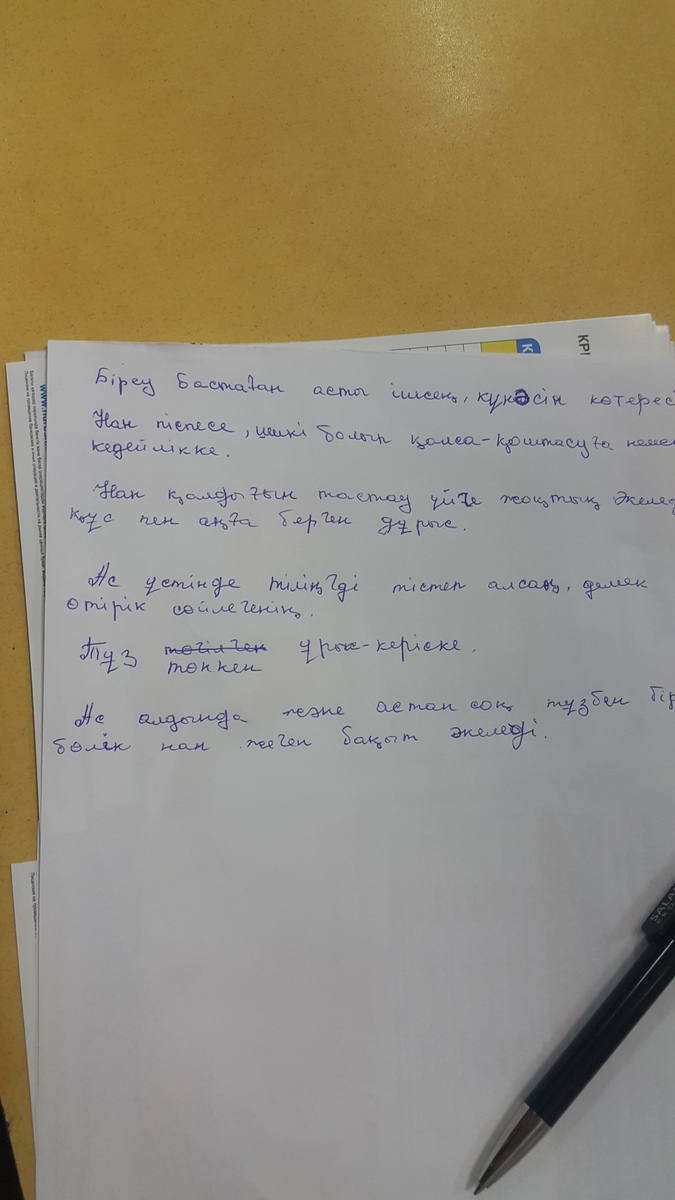 КРІ
Біреу бастаған асты ішсең, күнәсін көтерес
Нан піспесе, шикі болып қалса-қоштасуға неме
кедейлікке.
Нан қалдығын тастау үйге жоқтық әкелед
құс пен аңға берген дұрыс.
Ас үстінде тіліңді тістеп алсаң, демек
өтірік сөйлегенің.
Тұз төгілген ұрыс-керіске.
төккен
Ас алдында және астан соң тұзбен бір
бөлік нан жеген бақыт әкеледі.